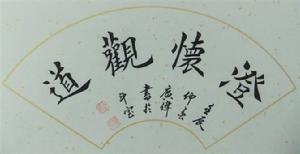 澄懷觀道
壬辰
仲冬
廣偉
書於